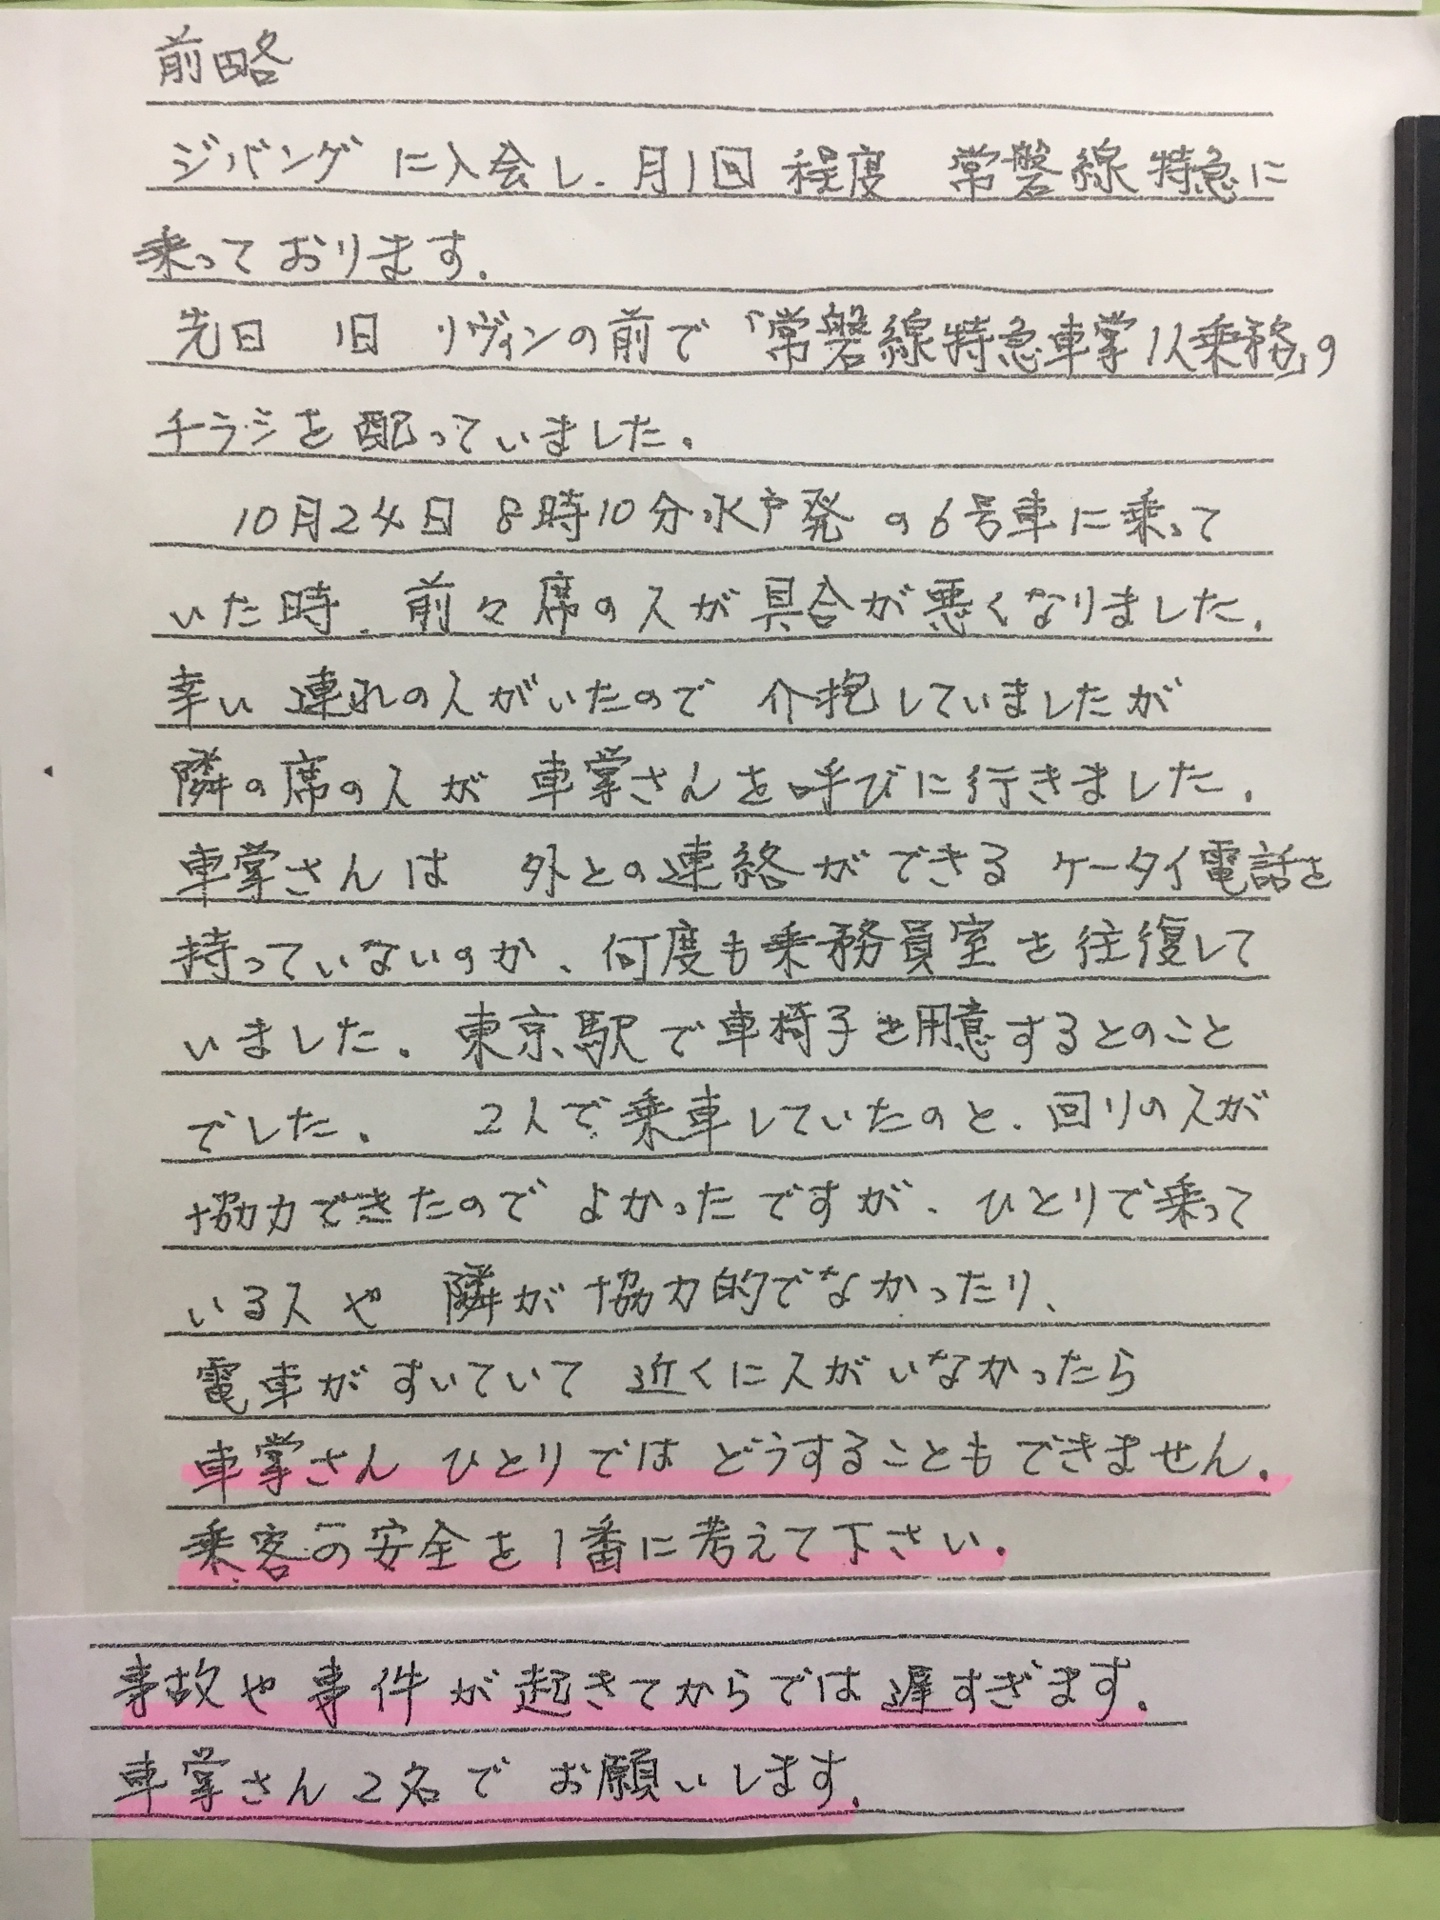 前略
ジバングに入会し、月1回程度 常磐線特急に
乗っております。
先日 旧 リヴィンの前で「常磐線特急車掌1人乗務」の
チラシを配っていました。
10月24日 8時10分水戸発の6号車に乗って
いた時、前々席の人が具合が悪くなりました。
幸い 連れの人がいたので 介抱していましたが
隣の席の人が 車掌さんを呼びに行きました。
車掌さんは 外との連絡ができるケータイ電話を
持っていないのか、何度も乗務員室を往復して
いました。東京駅で車椅子を用意するとのこと
でした。 2人で乗車していたのと、回りの人が
協力できたので よかったですが、ひとりで乗って
いる人や 隣が協力的でなかったり、
電車がすいていて 近くに人がいなかったら
車掌さん ひとりでは どうすることもできません。
乗客の安全を1番に考えて下さい。
事故や事件が起きてからでは遅すぎます。
車掌さん2名で お願いします。